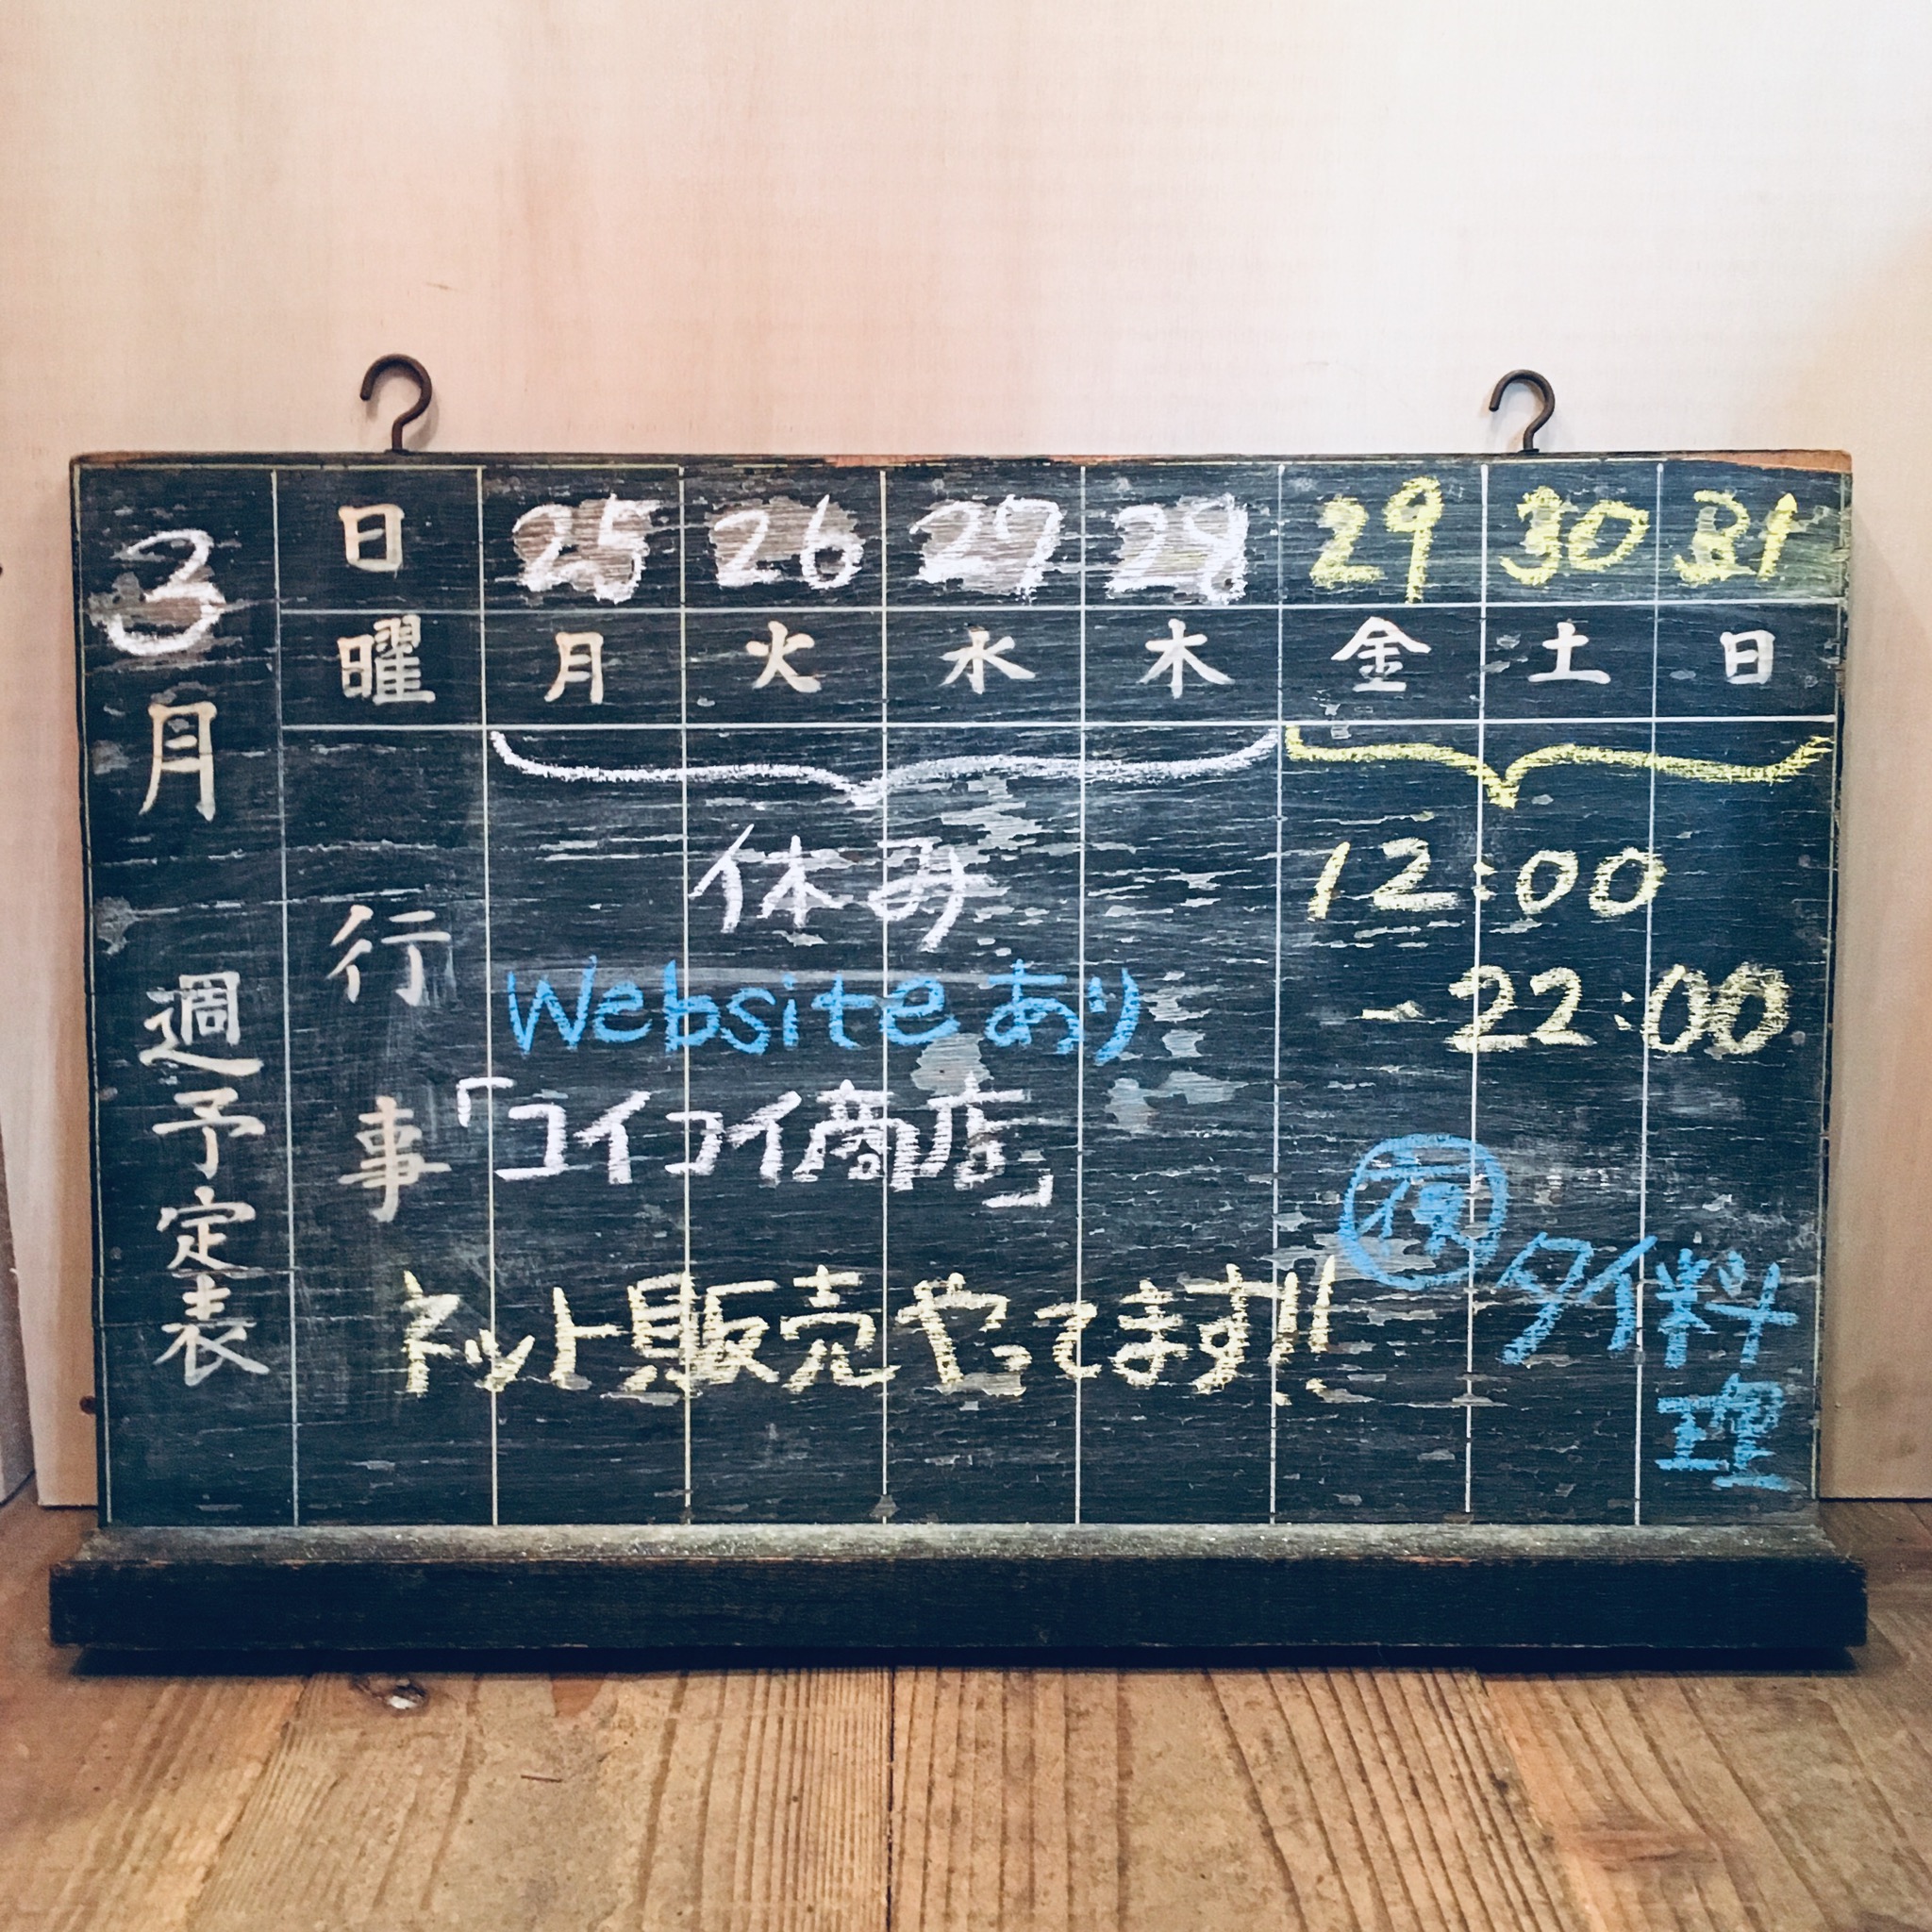 3月
週予定表
日 25 26 27 28 29 30 31
曜 月 火 水 木 金 土 日
行事
休み
Websiteあり
「コイコイ商店」
ネット販売やってます!!
12:00
-22:00
タイ料理